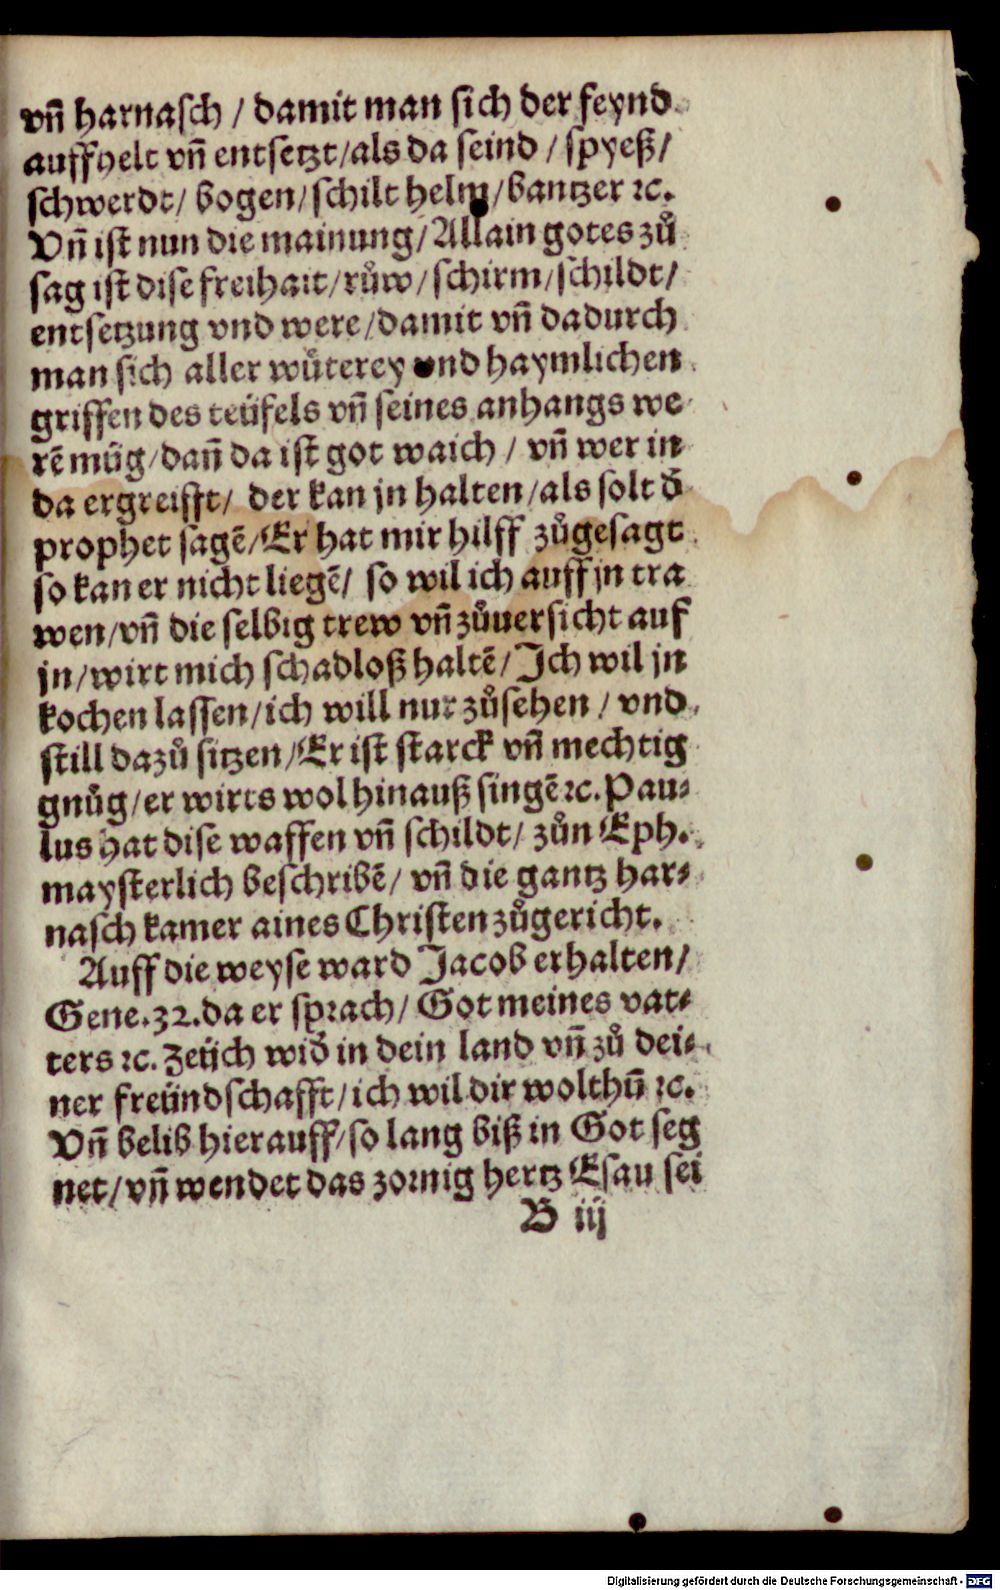 vñ harnasch / damit man sich der feynd
auffhelt vñ entsetzt/als da seind / spyeß/
schwerdt/ bogen/schilt helm/bantzer ꝛc.
Vñ ist nun die mainung/Allain gotes zů
sag ist dise freihait/růw/schirm/schildt/
entsetzung vnd were/damit vñ dadurch
man sich aller wůterey vnd haymlichen
griffen des teüfels vñ seines anhangs we
rẽ müg/dañ da ist got waich / vñ wer in
da ergreifft/ der kan jn halten/als solt d̕
prophet sagẽ/Er hat mir hilff zůgesagt
so kan er nicht liegẽ/ so wil ich auff jn tra
wen/vñ die selbig trew vñ zůuersicht auf
jn/wirt mich schadloß haltẽ/Ich wil jn
kochen lassen/ich will nur zůsehen / vnd
still dazů sitzen/Er ist starck vñ mechtig
gnůg/er wirts wol hinauß singẽ ꝛc. Pau⸗
lus hat dise waffen vñ schildt/ zůn Eph.
maysterlich beschribẽ/ vñ die gantz har⸗
nasch kamer aines Christen zůgericht.
Auff die weyse ward Jacob erhalten/
Gene.32.da er sprach/ Got meines vat⸗
ters ꝛc. Zeüch wid̕ in dein land vñ zů dei⸗
ner freündschafft/ich wil dir wolthũ ꝛc.
Vñ belib hierauff/so lang biß in Got seg
net/vñ wendet das zornig hertz Esau sei
B iij
Digitalisierung gefördert durch die Deutsche Forschungsgemeinschaft - DFG